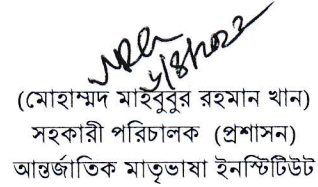 (মোহাম্মদ মাহবুবুর রহমান খান)
সহকারী পরিচালক (প্রশাসন)
আন্তর্জাতিক মাতৃভাষা ইনস্টিটিউট